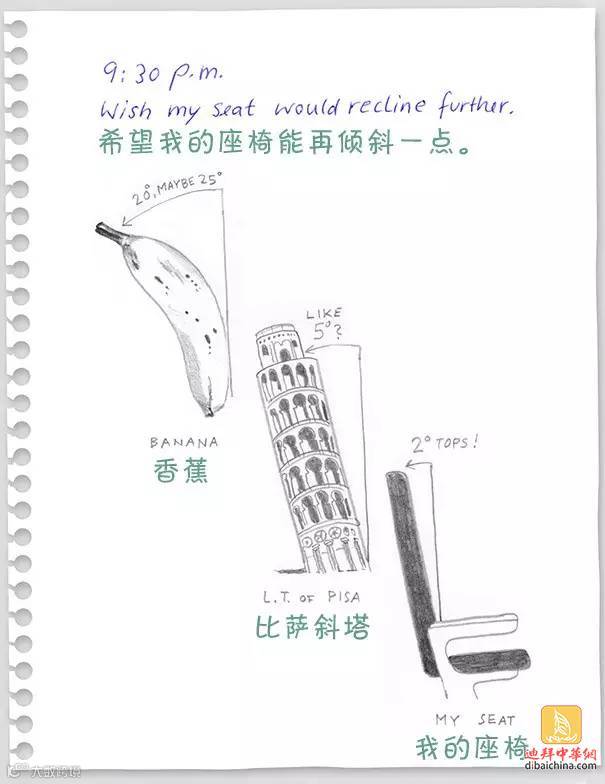 9:30 p.m.
Wish my seat would recline further.
希望我的座椅能再倾斜一点。
20°, MAYBE 25°
LIKE
5°?
BANANA
香蕉
2° TOPS!
L.T. OF PISA
比萨斜塔
MY SEAT
我的座椅
迪拜中華網
dibaichina.com
大数跨境